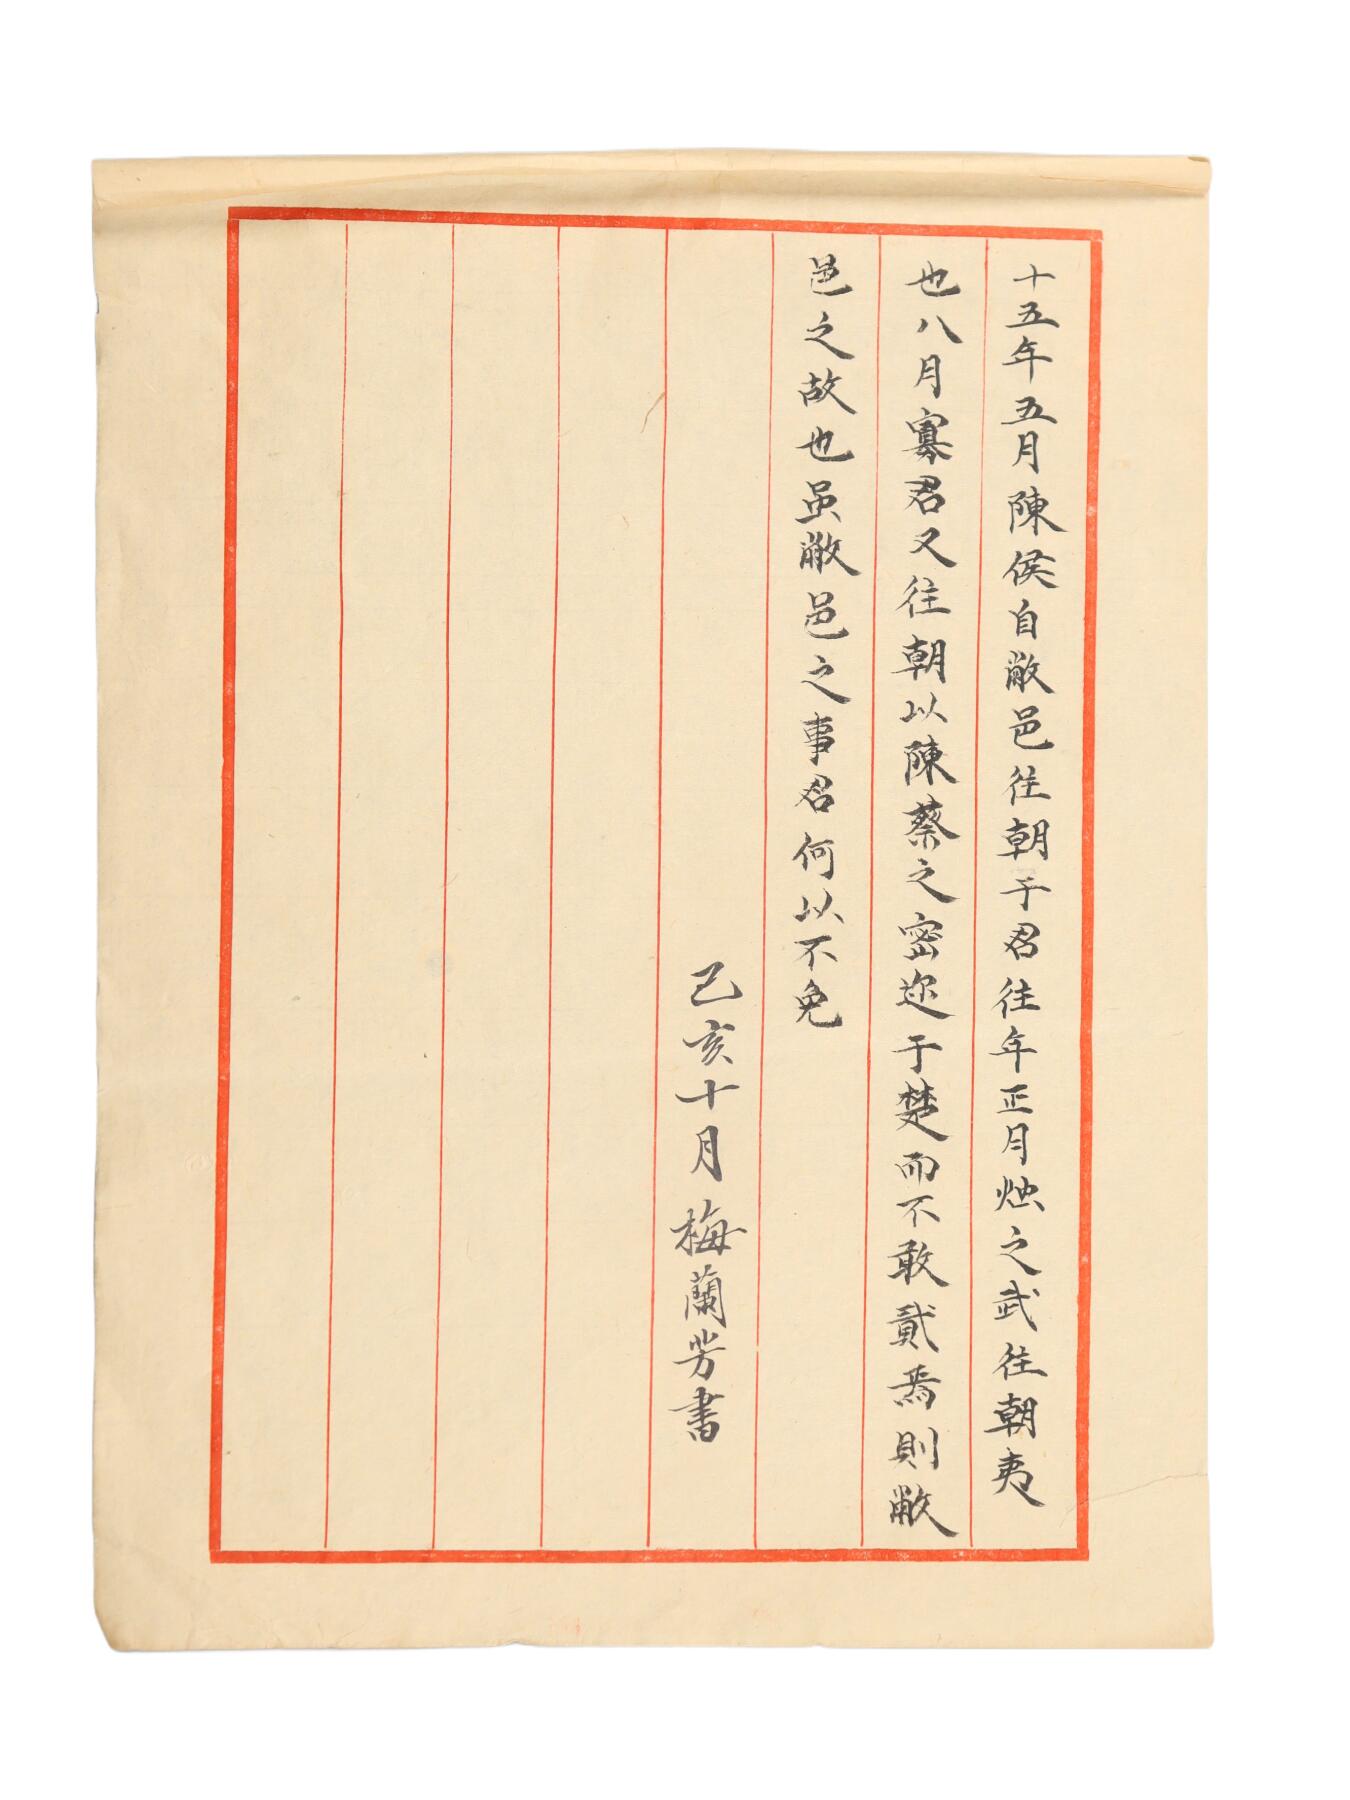 十五年五月陳侯自敝邑往朝于君往年正月烛之武往朝夷
也八月寡君又往朝以陳蔡之密迩于楚而不敢貳焉則敝
邑之故也虽敝邑之事君何以不免
己亥十月梅蘭芳書